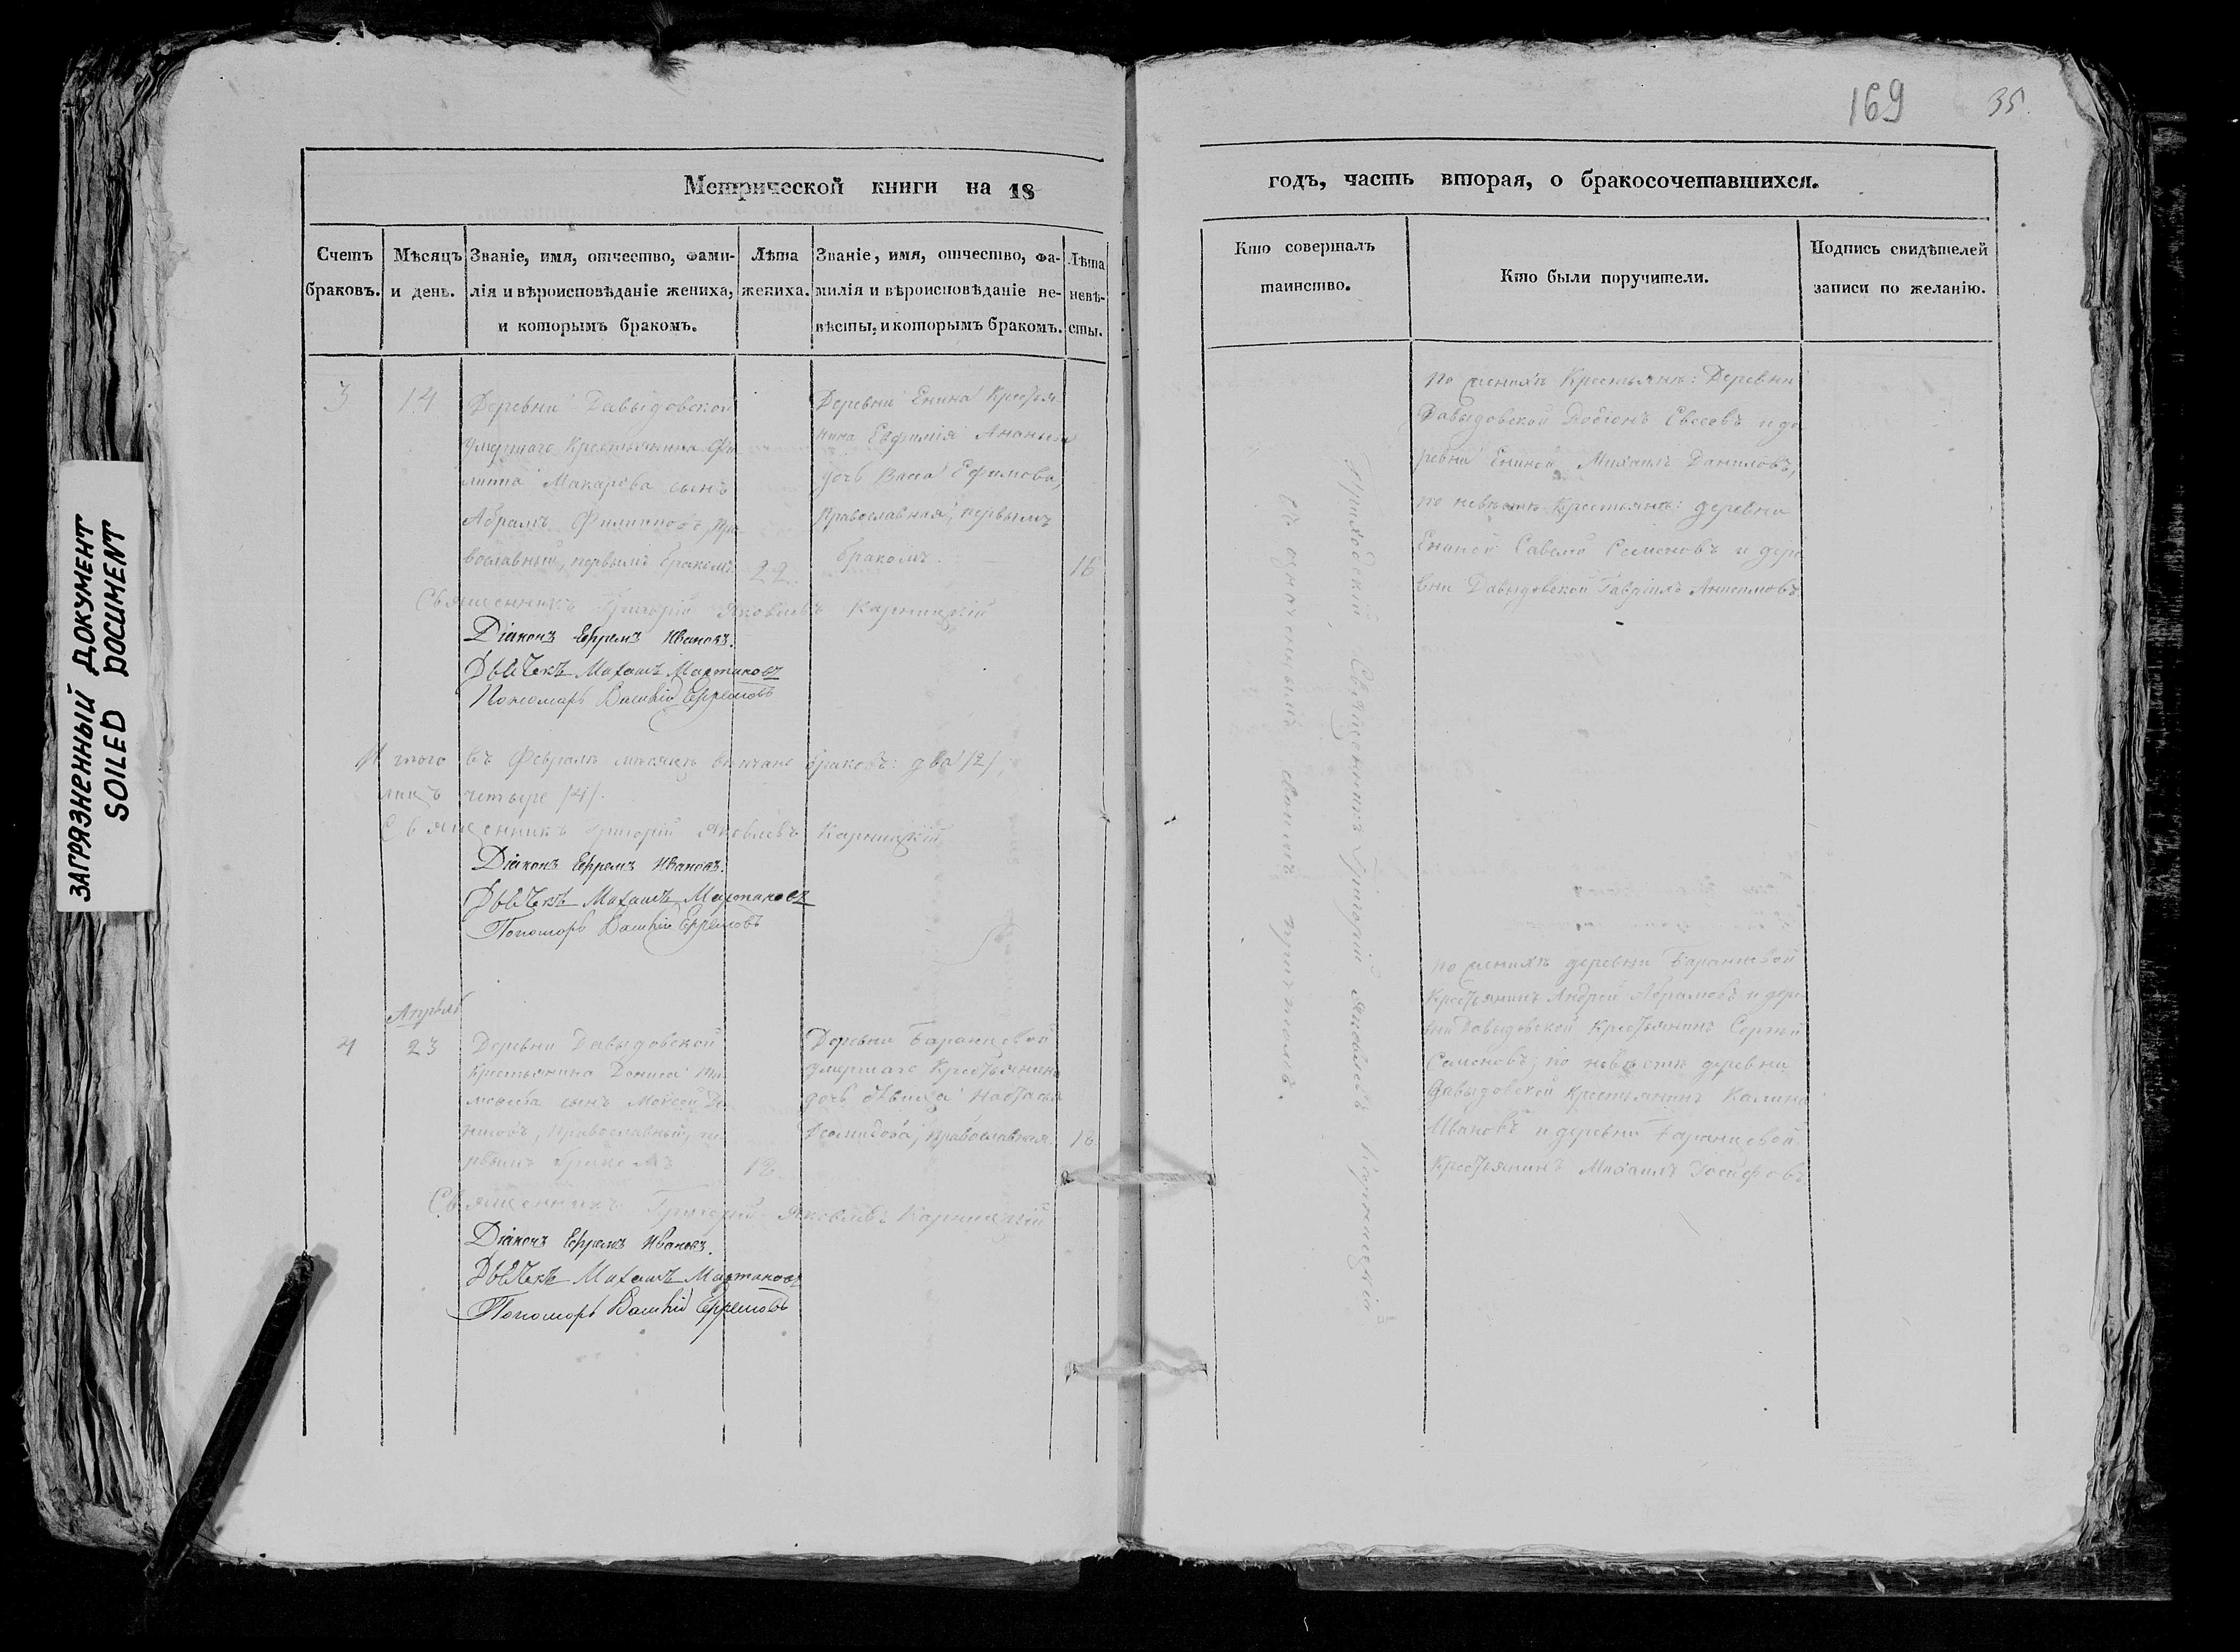 169
35.
ЗАГРЯЗНЕННЫЙ ДОКУМЕНТ
SOILED DOCUMENT
Метрической книги на 18
годъ, часть вторая, о бракосочетавшихся.
Счетъ браковъ.
Мѣсяцъ и день.
Званіе, имя, отчество, фами-
лія и вѣроисповѣданіе жениха,
и которымъ бракомъ.
Лѣта жениха.
Званіе, имя, отчество, фа-
милія и вѣроисповѣданіе не-
вѣсты, и которымъ бракомъ.
Лѣта невѣ-
сты.
Кто совершалъ
таинство.
Кто были поручители.
Подпись свидѣтелей
записи по желанію.
3
14
Деревни Давыдовской
умершаго Крестьянина Фи
липпа Макарова сынъ
Абрамъ Филиповъ, Пра-
вославный, первымъ бракомъ.
22.
Деревни Енина Крестья
нина Евфимія Ананьева
дочь Васса Ефимова,
православная, первымъ
бракомъ.
Священникъ Григорій Яковлевъ Карницкій
Діаконъ Ефремъ Ивановъ.
Дьячекъ Михаилъ Мартиновъ
Пономарь Василій Ефремовъ
по женихѣ Крестьяне: Деревни
Давыдовской Родіонъ Евсеевъ и де
ревни Ениной Михаилъ Даниловъ,
по невѣстѣ Крестьяне: деревни
Ениной Савелій Семеновъ и дере
вни Давыдовской Гавріилъ Анисимовъ
Приходскій Священникъ Григорій Яковлевъ Карницкій
съ означеннымъ своимъ причтомъ.
Итого въ Февралѣ мѣсяцѣ вѣнчано браковъ: два /2/,
лицъ четыре /4/.
Священникъ Григорій Яковлевъ Карницкій
Діаконъ Ефремъ Ивановъ.
Дьячекъ Михаилъ Мартиновъ
Пономарь Василій Ефремовъ
Апрѣль
4
23
Деревни Давыдовской
Крестьянина Дениса
сынъ Моисей Де
нисовъ, православный, пе
рвымъ бракомъ
18.
Деревни Баранцевой
умершаго Крестьянина
дочь дѣвица Настасья
Демидова, православная.
18.
Священникъ Григорій Яковлевъ Карницкій
Діаконъ Ефремъ Ивановъ.
Дьячекъ Михаилъ Мартиновъ
Пономарь Василій Ефремовъ
по женихѣ деревни Баранцевой
Крестьянинъ Андрей Абрамовъ и дере
вни Давыдовской Крестьянинъ Сергей
Семеновъ; по невѣстѣ деревни
Давыдовской Крестьянинъ Калина
Ивановъ и деревни Баранцевой
Крестьянинъ Михаилъ Іосифовъ